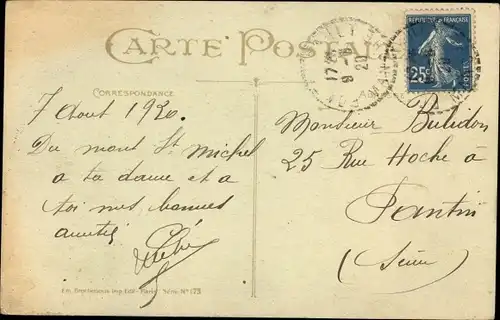 CARTE POSTALE
RÉPUBLIQUE FRANÇAISE
25c
POSTES
17
9-8
20
CORRESPONDANCE
7 Aout 1920.
Du mont St Michel
a ta dame et a
toi mes bonnes
amitiés
Monsieur
25 Rue Hoche à
Pantin
(Seine)
Imp. Édit - Paris Série N° 173